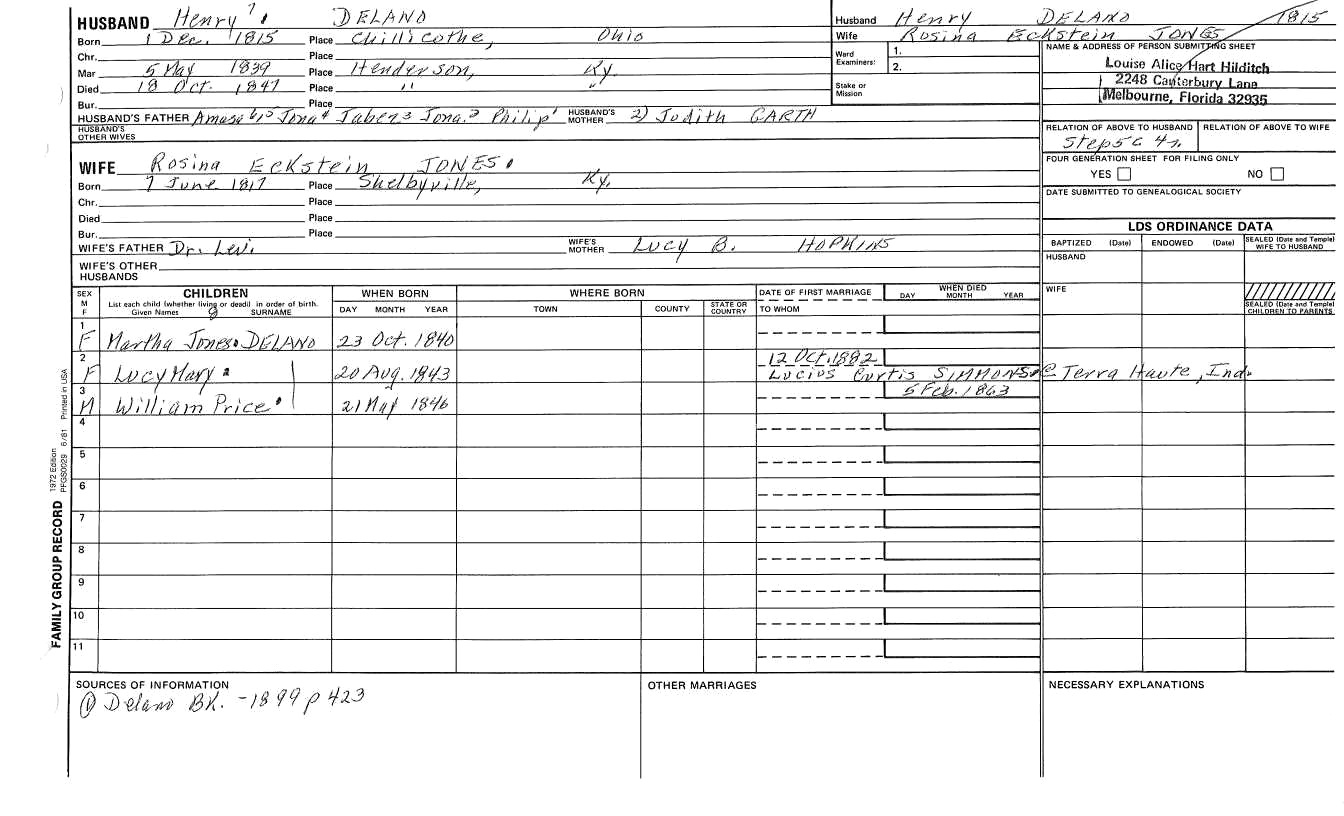 HUSBAND Henry 7 DELANO
Born 1 Dec. 1815 Place Chillicothe, Ohio
Chr. Place
Mar 5 May 1839 Place Henderson, Ky.
Died 18 Oct. 1847 Place " "
Bur. Place
HUSBAND'S FATHER Amasa 6, 5 Jona 4 Jabez 3 Jona. 2 Philip 1 HUSBAND'S MOTHER 2) Judith GARTH
HUSBAND'S OTHER WIVES
WIFE Rosina Eckstein JONES
Born 7 June 1817 Place Shelbyville, Ky.
Chr. Place
Died Place
Bur. Place
WIFE'S FATHER Dr. Levi WIFE'S MOTHER Lucy B. HOPKINS
WIFE'S OTHER HUSBANDS
Husband Henry DELANO 1815
Wife Rosina Eckstein JONES
Ward Examiners: 1.
2.
Stake or Mission
NAME & ADDRESS OF PERSON SUBMITTING SHEET
Louise Alice Hart Hilditch
2248 Canterbury Lane
Melbourne, Florida 32935
RELATION OF ABOVE TO HUSBAND RELATION OF ABOVE TO WIFE
Step5c 4r.
FOUR GENERATION SHEET FOR FILING ONLY
YES NO
DATE SUBMITTED TO GENEALOGICAL SOCIETY
LDS ORDINANCE DATA
BAPTIZED (Date) ENDOWED (Date) SEALED (Date and Temple) WIFE TO HUSBAND
HUSBAND
WIFE
SEALED (Date and Temple) CHILDREN TO PARENTS
SEX M F CHILDREN WHEN BORN WHERE BORN DATE OF FIRST MARRIAGE WHEN DIED
List each child (whether living or dead) in order of birth. DAY MONTH YEAR TOWN COUNTY STATE OR COUNTRY TO WHOM DAY MONTH YEAR
Given Names 8 SURNAME
1 F Martha Jones DELANO 23 Oct. 1840
2 12 Oct. 1882
F Lucy Mary 20 Aug. 1843 Lucius Curtis SIMMONS @ Terra Haute, Ind.
3 5 Feb. 1863
M William Price 21 May 1846
4
5
6
7
8
9
10
11
FAMILY GROUP RECORD 1972 Edition PFGS0029 6/81 Printed in USA
SOURCES OF INFORMATION OTHER MARRIAGES NECESSARY EXPLANATIONS
① Delano BK. - 1899 p 423